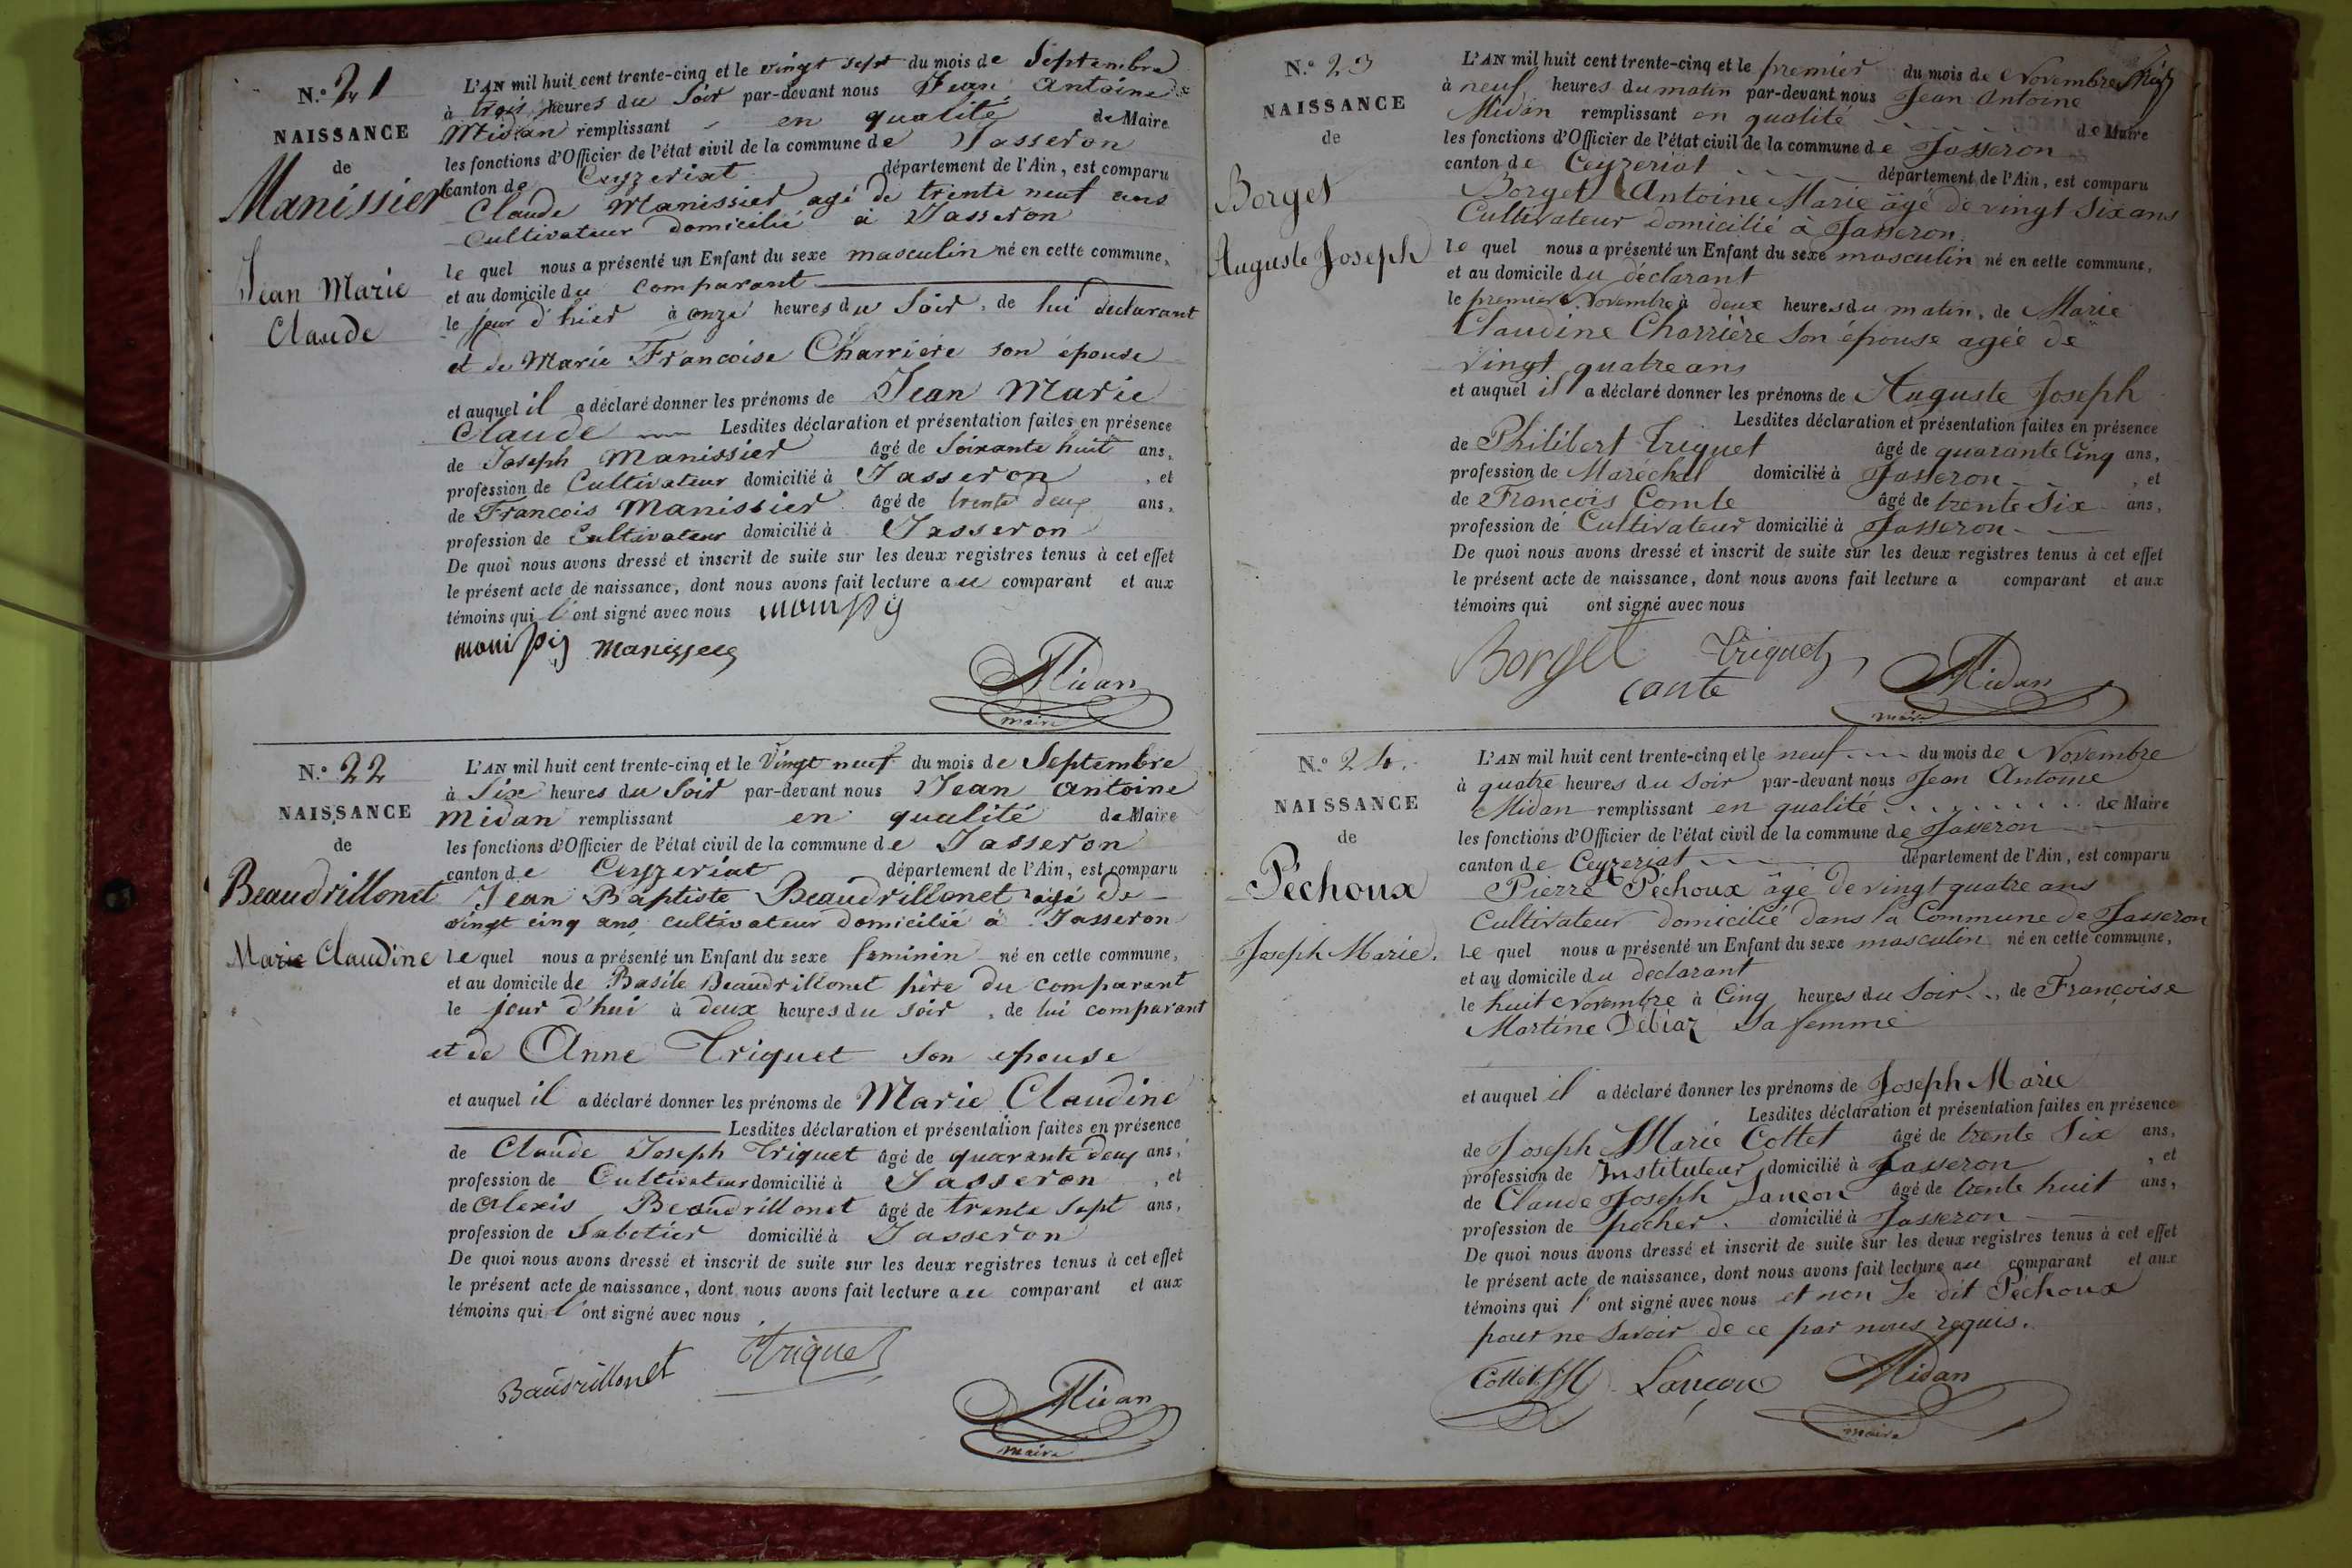 N.° 21
NAISSANCE
de
Manissier
Jean Marie
Claude
L'AN mil huit cent trente-cinq et le vingt sept du mois de Septembre
à trois heures du Soir par-devant nous Jean Antoine
Midan remplissant en qualité de Maire
les fonctions d'Officier de l'état civil de la commune de Jasseron
canton de Ceyzeriat département de l'Ain, est comparu
Claude Manissier agé de trente neuf ans
Cultivateur domicilié à Jasseron
le quel nous a présenté un Enfant du sexe masculin né en cette commune,
et au domicile du comparant
le jour d'hier à onze heures du Soir, de lui déclarant
et de Marie Francoise Charriere son épouse
et auquel il a déclaré donner les prénoms de Jean Marie
Claude Lesdites déclaration et présentation faites en présence
de Joseph Manissier âgé de Soixante huit ans,
profession de Cultivateur domicilié à Jasseron, et
de Francois Manissier âgé de trente deux ans,
profession de Cultivateur domicilié à Jasseron
De quoi nous avons dressé et inscrit de suite sur les deux registres tenus à cet effet
le présent acte de naissance, dont nous avons fait lecture au comparant et aux
témoins qui l'ont signé avec nous
Midan
maire
N.° 22
NAISSANCE
de
Beaudrillonet
Marie Claudine
L'AN mil huit cent trente-cinq et le Vingt neuf du mois de Septembre
à Six heures du Soir par-devant nous Jean Antoine
Midan remplissant en qualité de Maire
les fonctions d'Officier de l'état civil de la commune de Jasseron
canton de Ceyzeriat département de l'Ain, est comparu
Jean Baptiste Beaudrillonet agé de
vingt cinq ans cultivateur domicilié à Jasseron
Le quel nous a présenté un Enfant du sexe feminin né en cette commune,
et au domicile de Basile Beaudrillonet père du comparant
le jour d'hui à deux heures du soir, de lui comparant
et de Anne Triquet son epouse
et auquel il a déclaré donner les prénoms de Marie Claudine
Lesdites déclaration et présentation faites en présence
de Claude Joseph Triquet âgé de quarante deux ans,
profession de Cultivateur domicilié à Jasseron, et
de Alexis Beaudrillonet âgé de trente Sept ans,
profession de Sabotier domicilié à Jasseron
De quoi nous avons dressé et inscrit de suite sur les deux registres tenus à cet effet
le présent acte de naissance, dont nous avons fait lecture au comparant et aux
témoins qui l'ont signé avec nous
Baudrillonet Triquet
Midan
maire
N.° 23
NAISSANCE
de
Borget
Auguste Joseph
L'AN mil huit cent trente-cinq et le premier du mois de Novembre
à neuf heures du matin par-devant nous Jean Antoine
Midan remplissant en qualité de Maire
les fonctions d'Officier de l'état civil de la commune de Jasseron
canton de Ceyzeriat département de l'Ain, est comparu
Borget Antoine Marie âgé de vingt Six ans
Cultivateur domicilié à Jasseron
le quel nous a présenté un Enfant du sexe masculin né en cette commune,
et au domicile du déclarant
le premier Novembre à deux heures du matin, de Marie
Claudine Charrière Son épouse agée de
vingt quatre ans
et auquel il a déclaré donner les prénoms de Auguste Joseph
Lesdites déclaration et présentation faites en présence
de Philibert Triquet âgé de quarante Cinq ans,
profession de Maréchal domicilié à Jasseron, et
de François Comte âgé de trente Six ans,
profession de Cultivateur domicilié à Jasseron
De quoi nous avons dressé et inscrit de suite sur les deux registres tenus à cet effet
le présent acte de naissance, dont nous avons fait lecture a comparant et aux
témoins qui ont signé avec nous
Borget Triquet
conte Midan
maire
N.° 24.
NAISSANCE
de
Péchoux
Joseph Marie.
L'AN mil huit cent trente-cinq et le neuf du mois de Novembre
à quatre heures du Soir par-devant nous Jean Antoine
Midan remplissant en qualité de Maire
les fonctions d'Officier de l'état civil de la commune de Jasseron
canton de Ceyzeriat département de l'Ain, est comparu
Pierre Péchoux âgé de vingt quatre ans
Cultivateur domicilié dans la Commune de Jasseron
Le quel nous a présenté un Enfant du sexe masculin né en cette commune,
et au domicile du déclarant
le huit Novembre à Cinq heures du Soir, de Françoise
Martine Débiaz Sa femme
et auquel il a déclaré donner les prénoms de Joseph Marie
Lesdites déclaration et présentation faites en présence
de Joseph Marie Cottet âgé de trente Six ans,
profession de Instituteur domicilié à Jasseron, et
de Claude Joseph Lançon âgé de trente huit ans,
profession de domicilié à Jasseron
De quoi nous avons dressé et inscrit de suite sur les deux registres tenus à cet effet
le présent acte de naissance, dont nous avons fait lecture au comparant et aux
témoins qui l'ont signé avec nous et non Le dit Péchoux
pour ne Savoir de ce par nous requis.
Cottet Lançon Midan
maire